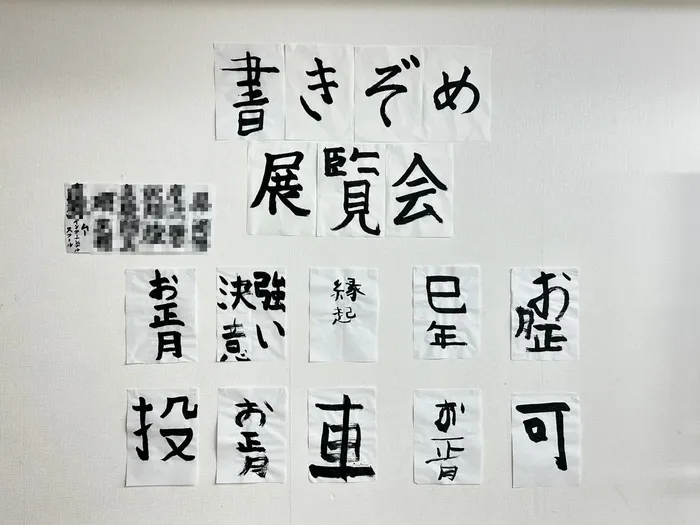 書きぞめ
展覧会
お正月
強い
決意
縁起
巳年
お正月
投
お正月
車
お正月
可